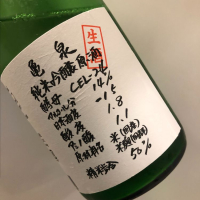 亀泉
生酒
純米吟醸原酒
酵母 CEL-24
アルコール分 14%
日本酒度
酸度 1.8
アミノ酸度 1.1
原材料名 米(国産)
米麹(国産米)
精米歩合 50%